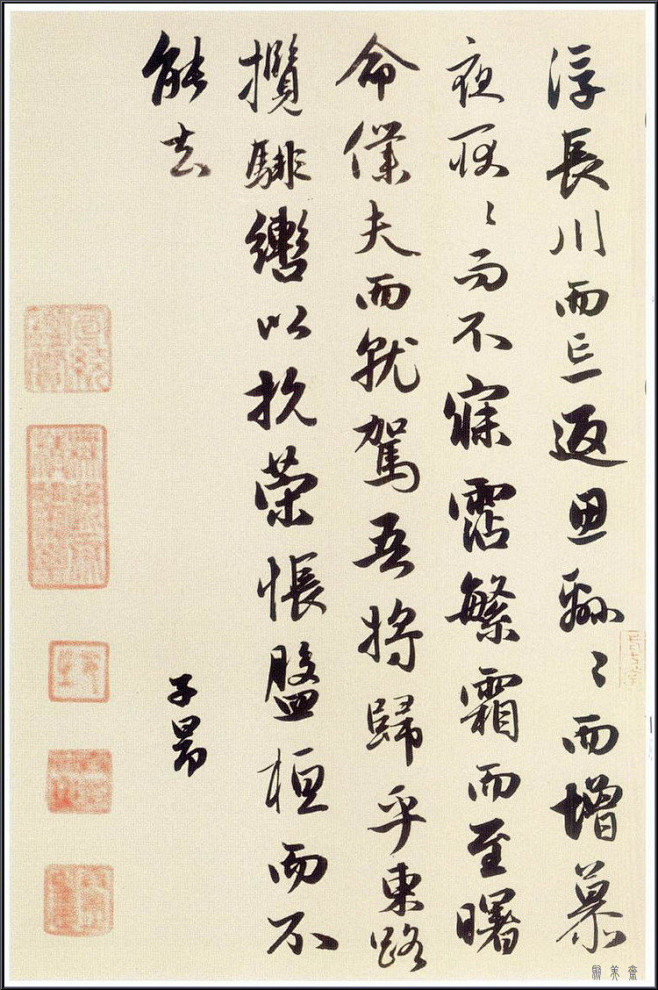 浮長川而忘返思緜〻而增慕
夜耿〻而不寐霑繁霜而至曙
命僕夫而就駕吾將歸乎東路
攬騑轡以抗策悵盤桓而不
能去
子昂